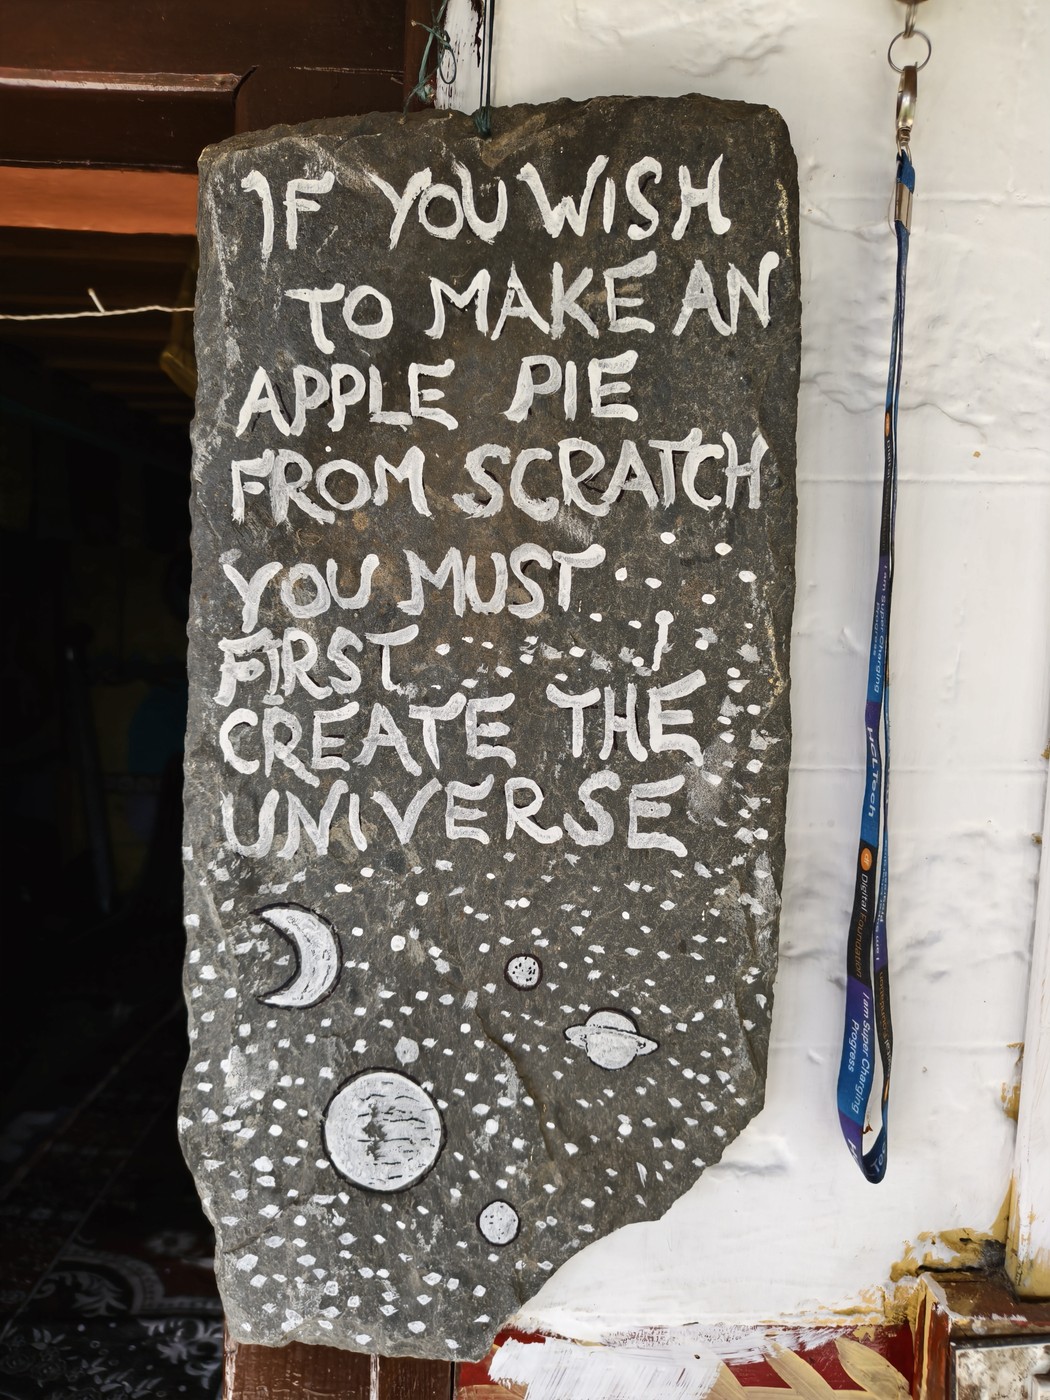 IF YOU WISH
TO MAKE AN
APPLE PIE
FROM SCRATCH
YOU MUST
FIRST
CREATE THE
UNIVERSE
I am Super Charging
Progress
HCLTech
Digital Foundation
I am Super Charging
Progress